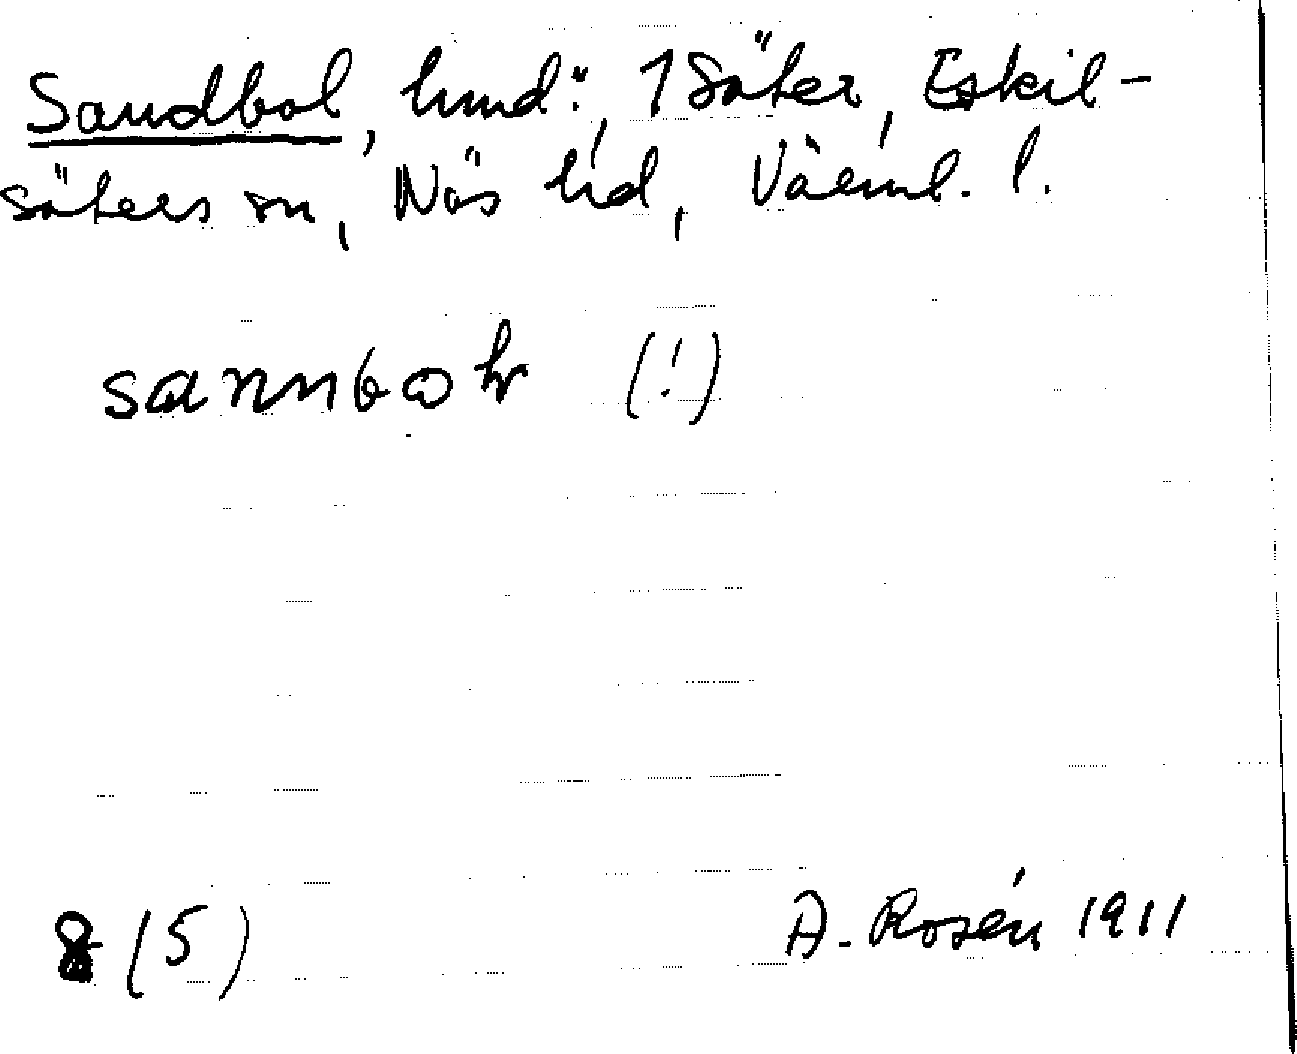 Sandbol, hmd: 1 Säter, Eskil-
säters sn, Näs hd, Värml. l.
sannbo (!)
8 (5)
A. Rosén 1911